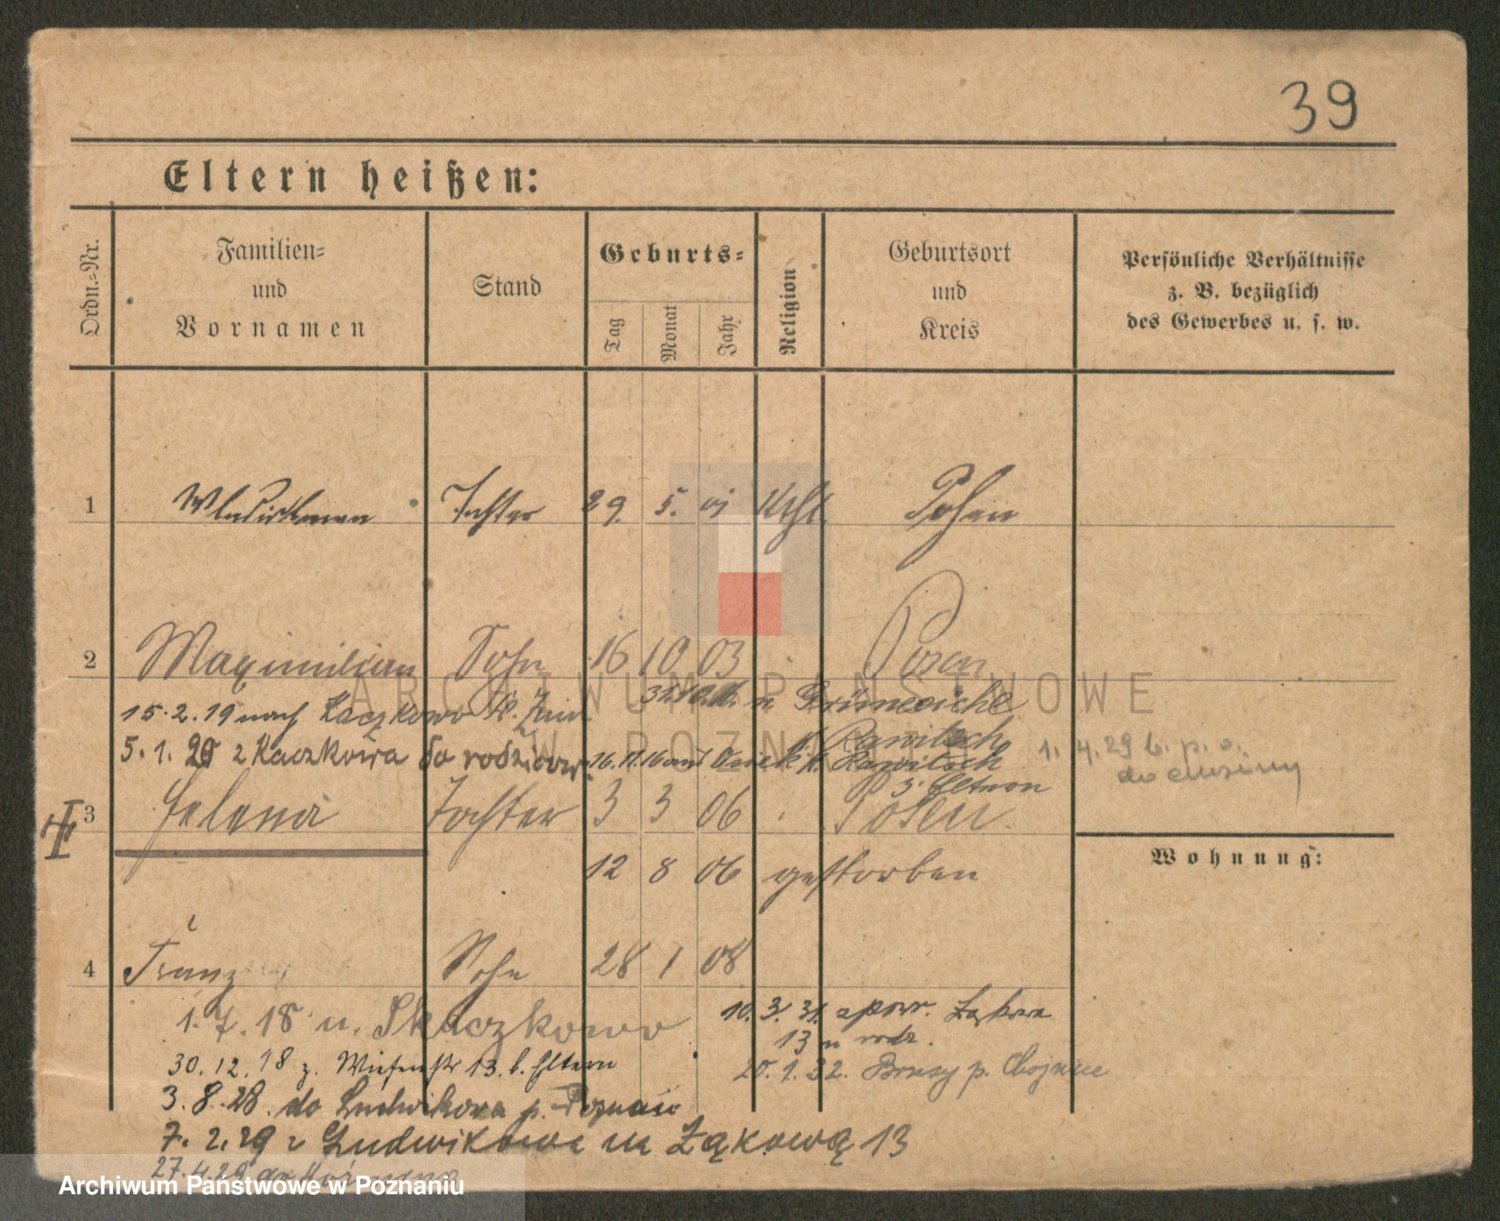 39
Eltern heißen:
Ordn.-Nr.
Familien- und Vornamen
Stand
Geburts-
Tag
Monat
Jahr
Religion
Geburtsort und Kreis
Persönliche Verhältnisse z. B. bezüglich des Gewerbes u. s. w.
1 Tochter 29. 5. 01 Kthl. Posen
2 Maximilian Sohn 16 10 03 Posen
ARCHIWUM PAŃSTWOWE
W POZNANIU
15.2.19 nach Kaczkowo
n Grüneiche
Rawitsch
5.1.20 z Kaczkowa do rodziców
16.11. Rawitsch
z. Eltern
1.4.29 b. p. o.
3 Helena Tochter 3 3 06 Posen
12 8 06 gestorben
Wohnung:
4 Franz Sohn 28 1 08
1.7.18 n. Skaczkowo
10.3.31. z pow. Łąkowa
13 u rodz.
30.12.18 z. Wiesenstr 13. b. Eltern
20.1.32. Brusy p. Chojnice
3.8.28. do Ludwikowa p. Poznań
7.2.29 z Ludwikowa na Łąkową 13
27.4.29 do
Archiwum Państwowe w Poznaniu